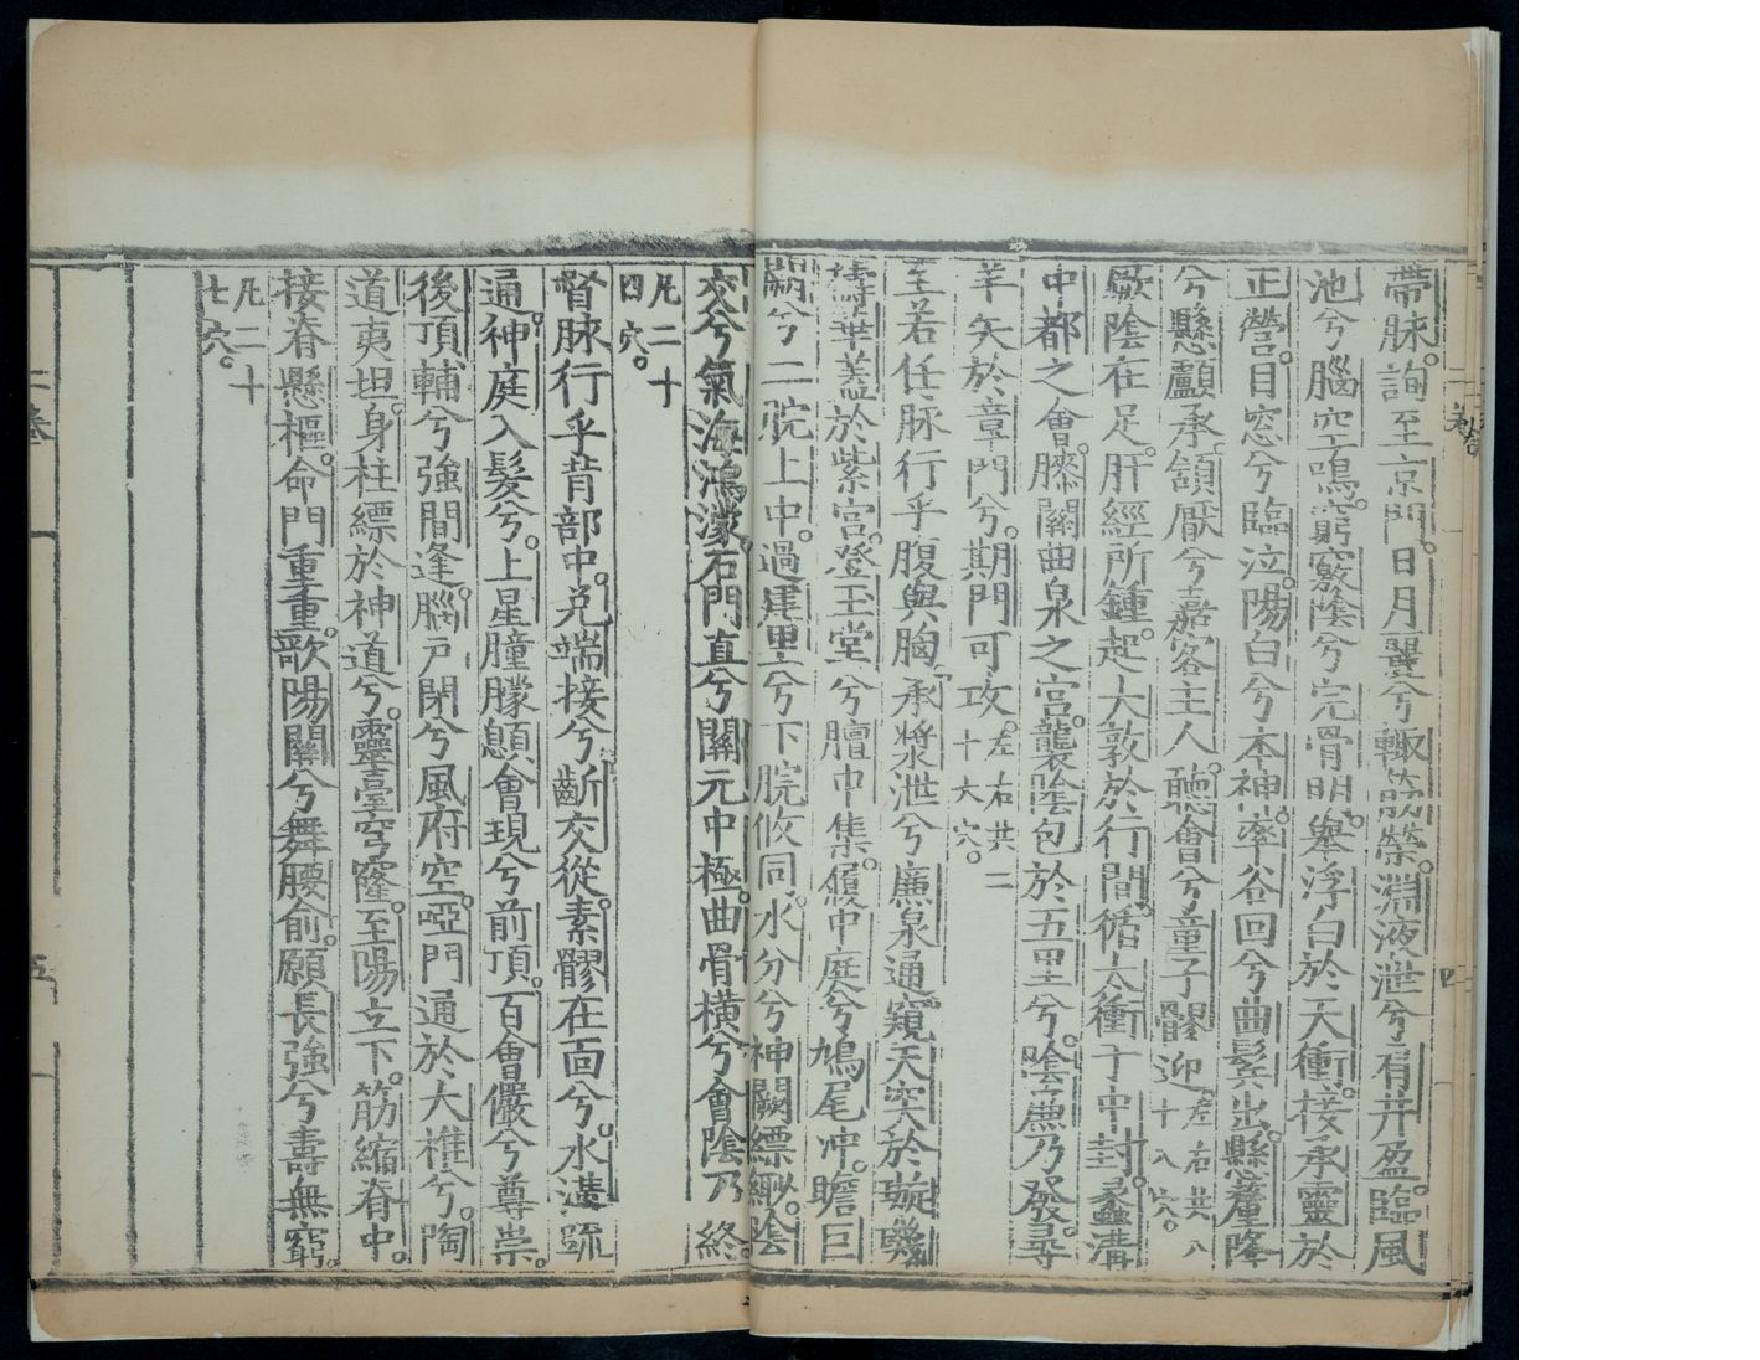 帶脉。詢至京門。日月翼兮輙筋榮。淵液泄兮肩井盈。臨風
池兮腦空鳴。窮竅陰兮完骨明。舉浮白於天衝。接承靈於
正營。目窓兮臨泣。陽白兮本神。率谷回兮曲鬂出。懸釐降
兮懸顱承。頷厭兮嘉客主人。聽會兮童子髎迎。左右共八十八穴。
厥陰在足。肝經所鍾。起大敦於行間。循太衝于中封。蠡溝
中都之會。膝關曲泉之宮。襲陰包於五里兮。陰廉乃發。尋
羊矢於章門兮。期門可攻。左右共二十六穴。
至若任脉行乎腹與胸。承漿泄兮廉泉通。窺天突於璇璣
擣華蓋於紫宮。登玉堂兮膻中集。履中庭兮鳩尾冲。瞻巨
闕兮二脘上中。過建里兮下脘攸同。水分兮神闕縹緲。陰
交兮氣海鴻濛。石門直兮關元中極。曲骨橫兮會陰乃終。
凡二十四穴。
督脉行乎背部中。兌端接兮齗交從。素髎在面兮。水溝疏
通。神庭入髮兮。上星瞳朦。顖會現兮前頂。百會儼兮尊崇。
後頂輔兮強間逢。腦戶閉兮風府空。啞門通於大椎兮。陶
道夷坦。身柱縹於神道兮。靈臺穹窿。至陽立下。筋縮脊中。
接脊懸樞。命門重重。歌陽關兮舞腰俞。願長強兮壽無窮。
凡二十七穴。
五